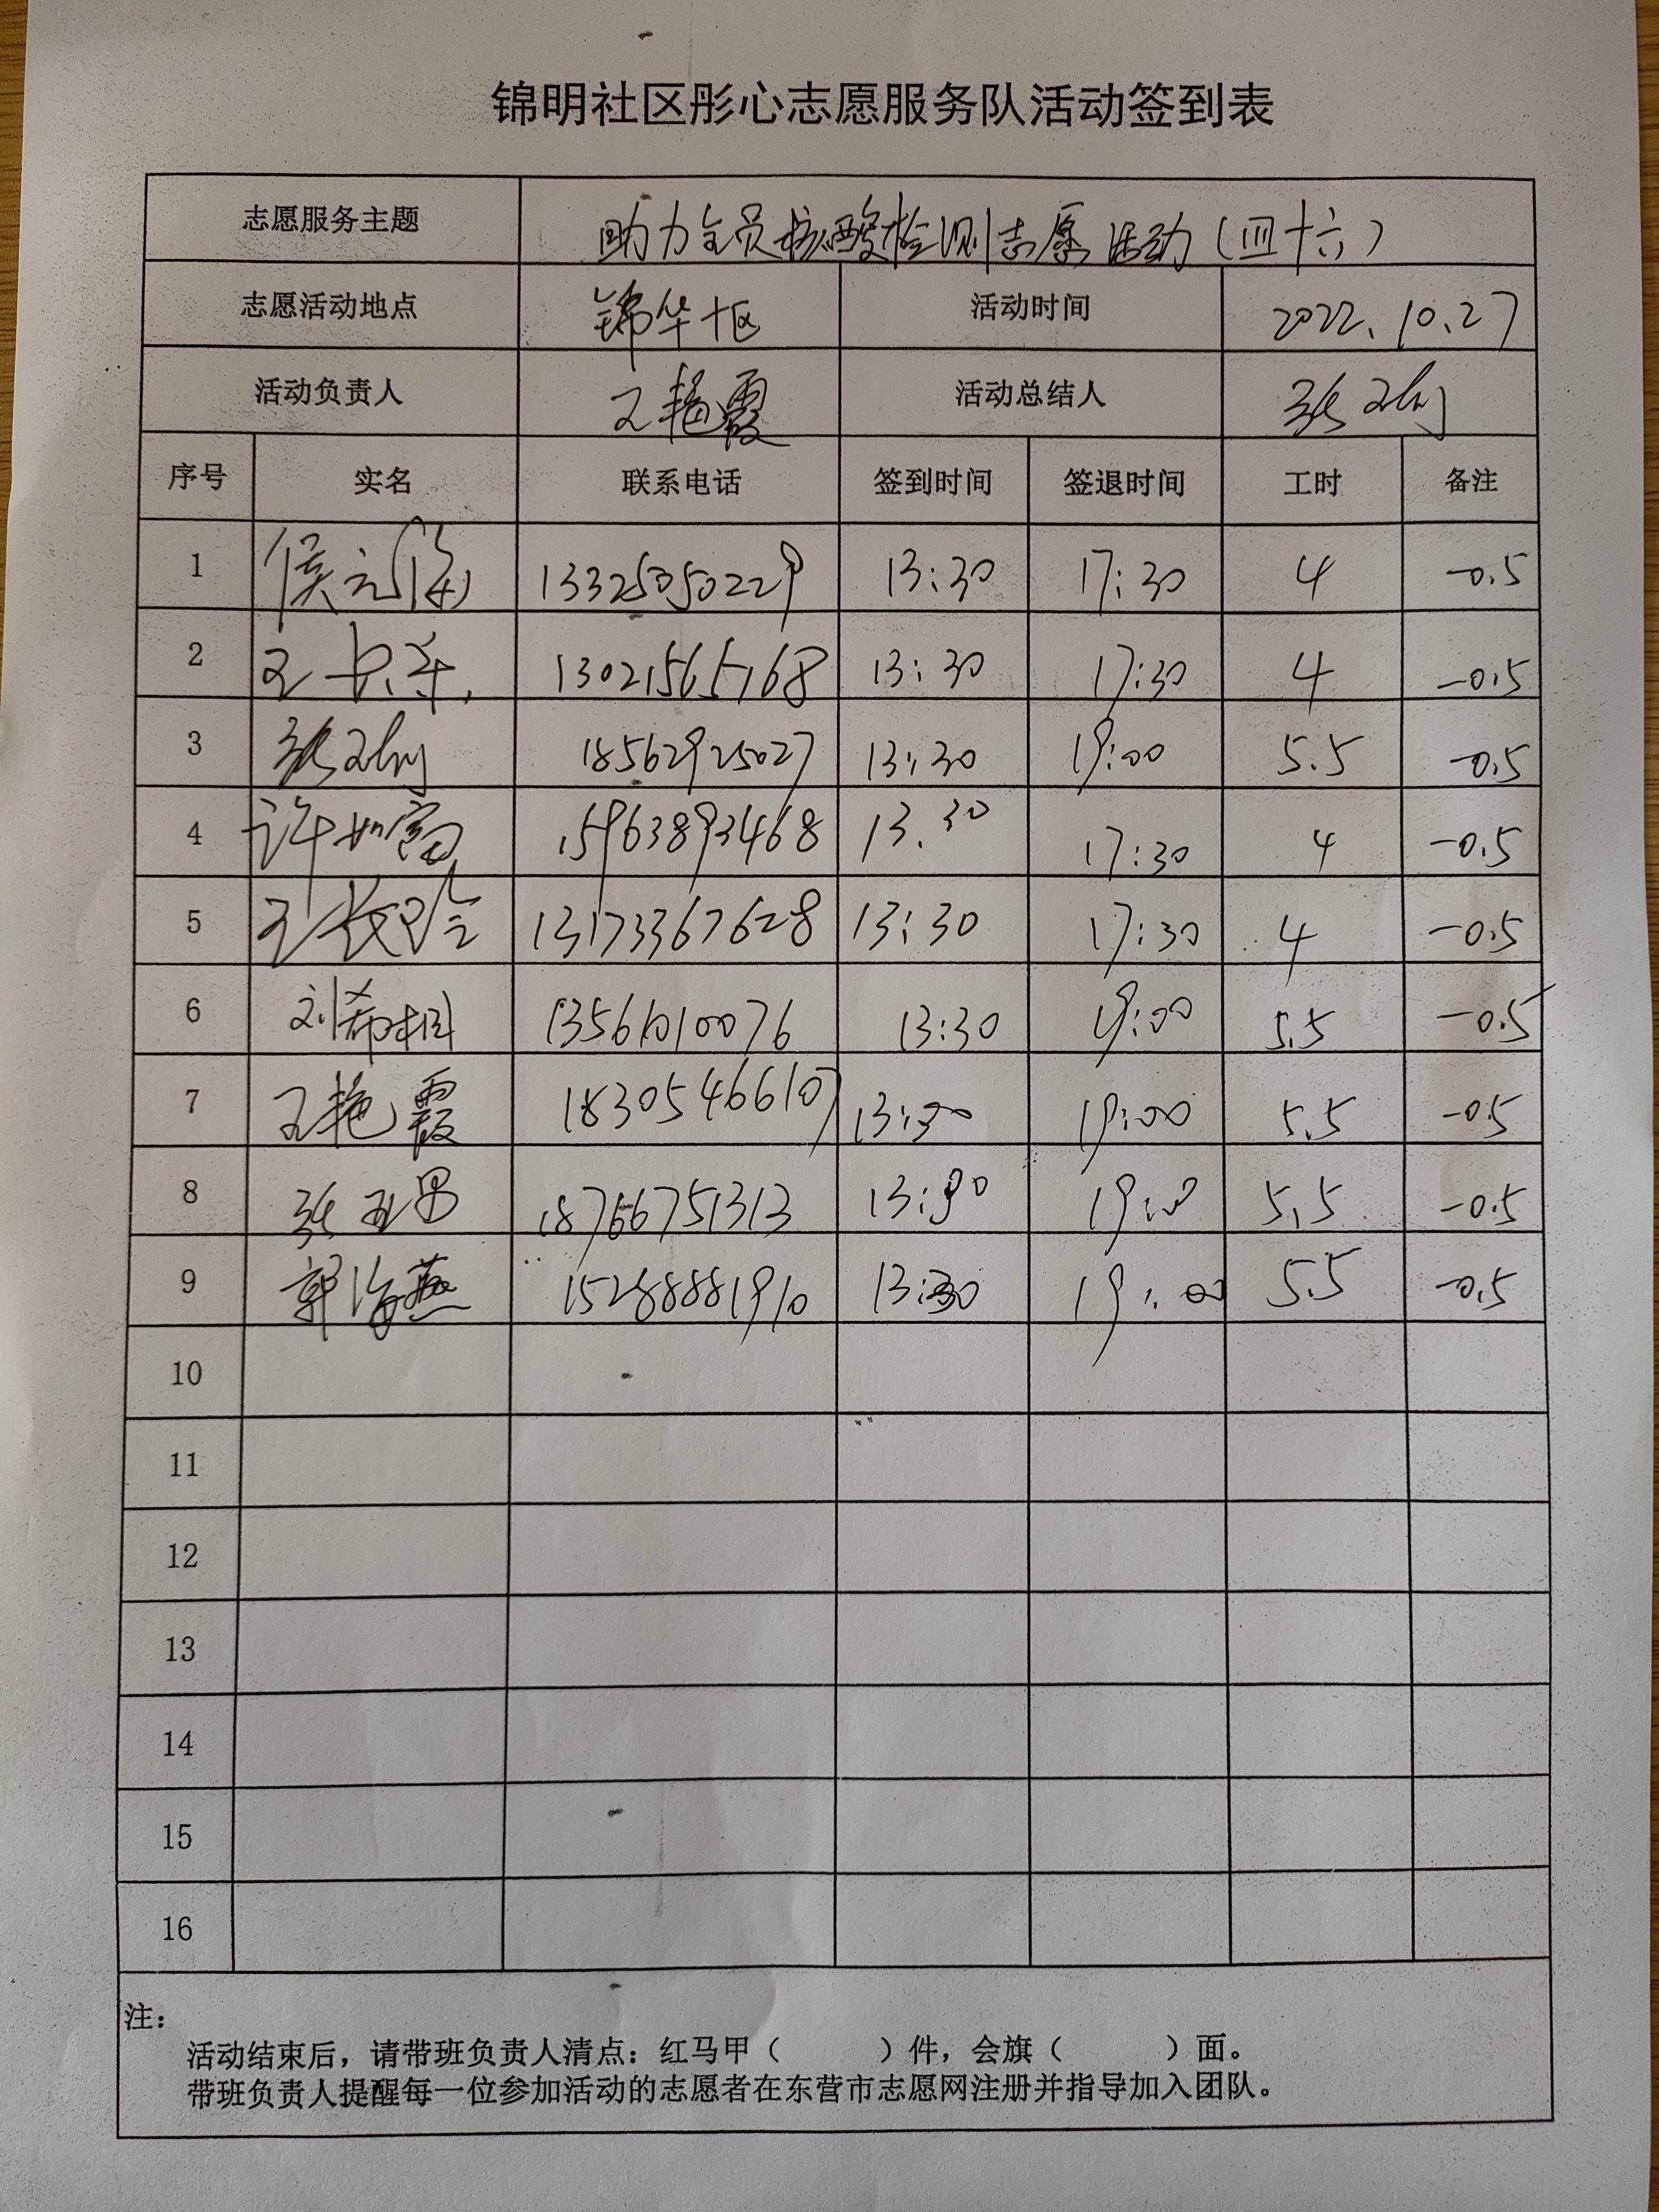 锦明社区彤心志愿服务队活动签到表
志愿服务主题 助力全员核酸检测志愿活动(四十六)
志愿活动地点 锦华十区 活动时间 2022.10.27
活动负责人 王艳霞 活动总结人 张
序号 实名 联系电话 签到时间 签退时间 工时 备注
1 侯元 13325050229 13:30 17:30 4 -0.5
2 王 13021565168 13:30 17:30 4 -0.5
3 张 18562925027 13:30 19:00 5.5 -0.5
4 许如富 15963893468 13:30 17:30 4 -0.5
5 王 13173367628 13:30 17:30 4 -0.5
6 刘希相 13561010076 13:30 19:00 5.5 -0.5
7 王艳霞 18305466107 13:30 19:00 5.5 -0.5
8 张 18766751313 13:30 19:00 5.5 -0.5
9 郭海燕 15288881910 13:30 19:00 5.5 -0.5
10
11
12
13
14
15
16
注:
活动结束后,请带班负责人清点:红马甲( )件,会旗( )面。
带班负责人提醒每一位参加活动的志愿者在东营市志愿网注册并指导加入团队。